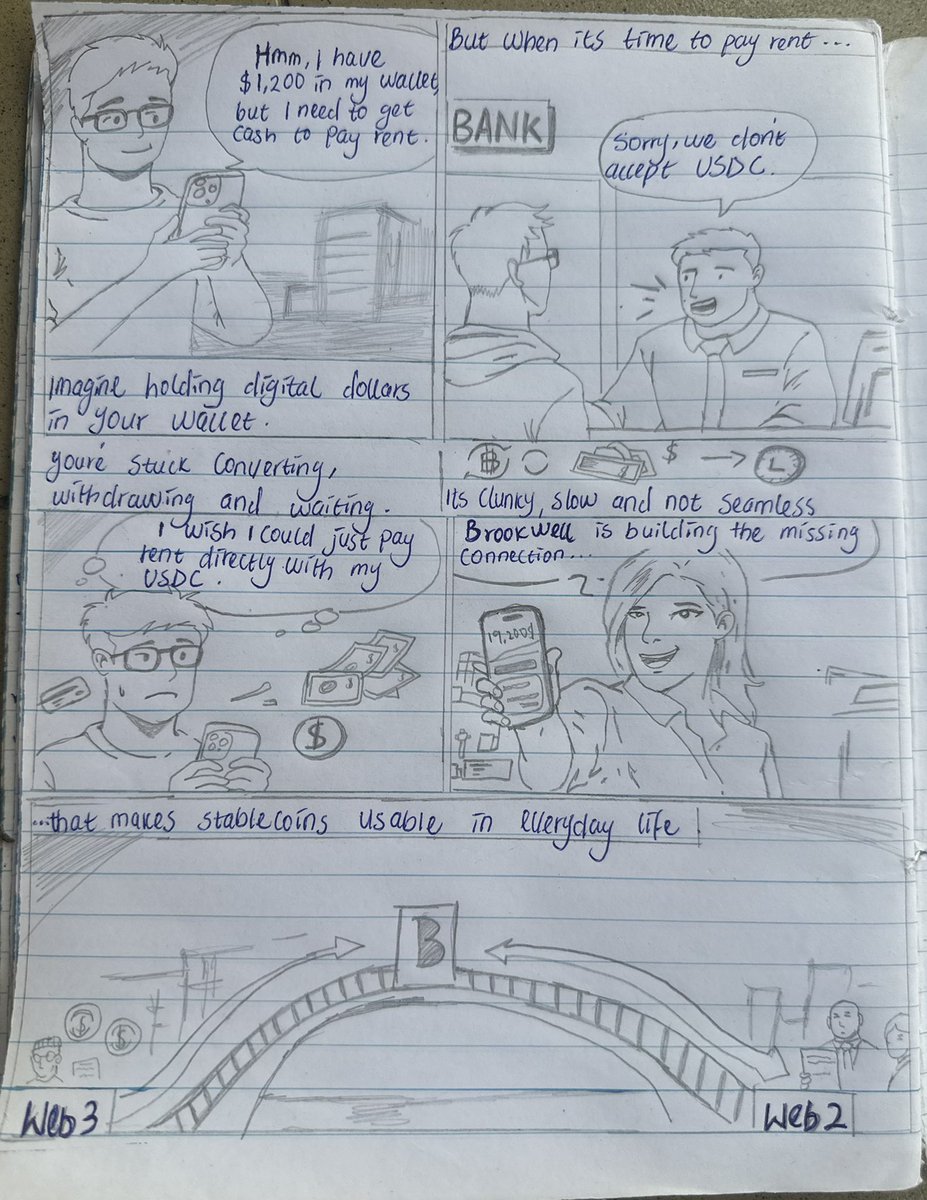 Hmm, I have
$1,200 in my wallet,
but I need to get
cash to pay rent.
Imagine holding digital dollars
in your wallet.
But when its time to pay rent ...
BANK
Sorry, we don't
accept USDC.
you're stuck converting,
withdrawing and waiting.
I wish I could just pay
rent directly with my
USDC.
$
$
$
Its clunky, slow and not seamless
Brookwell is building the missing
connection...
19,200$
...that makes stablecoins usable in everyday life
B
$
$
Web3
Web2